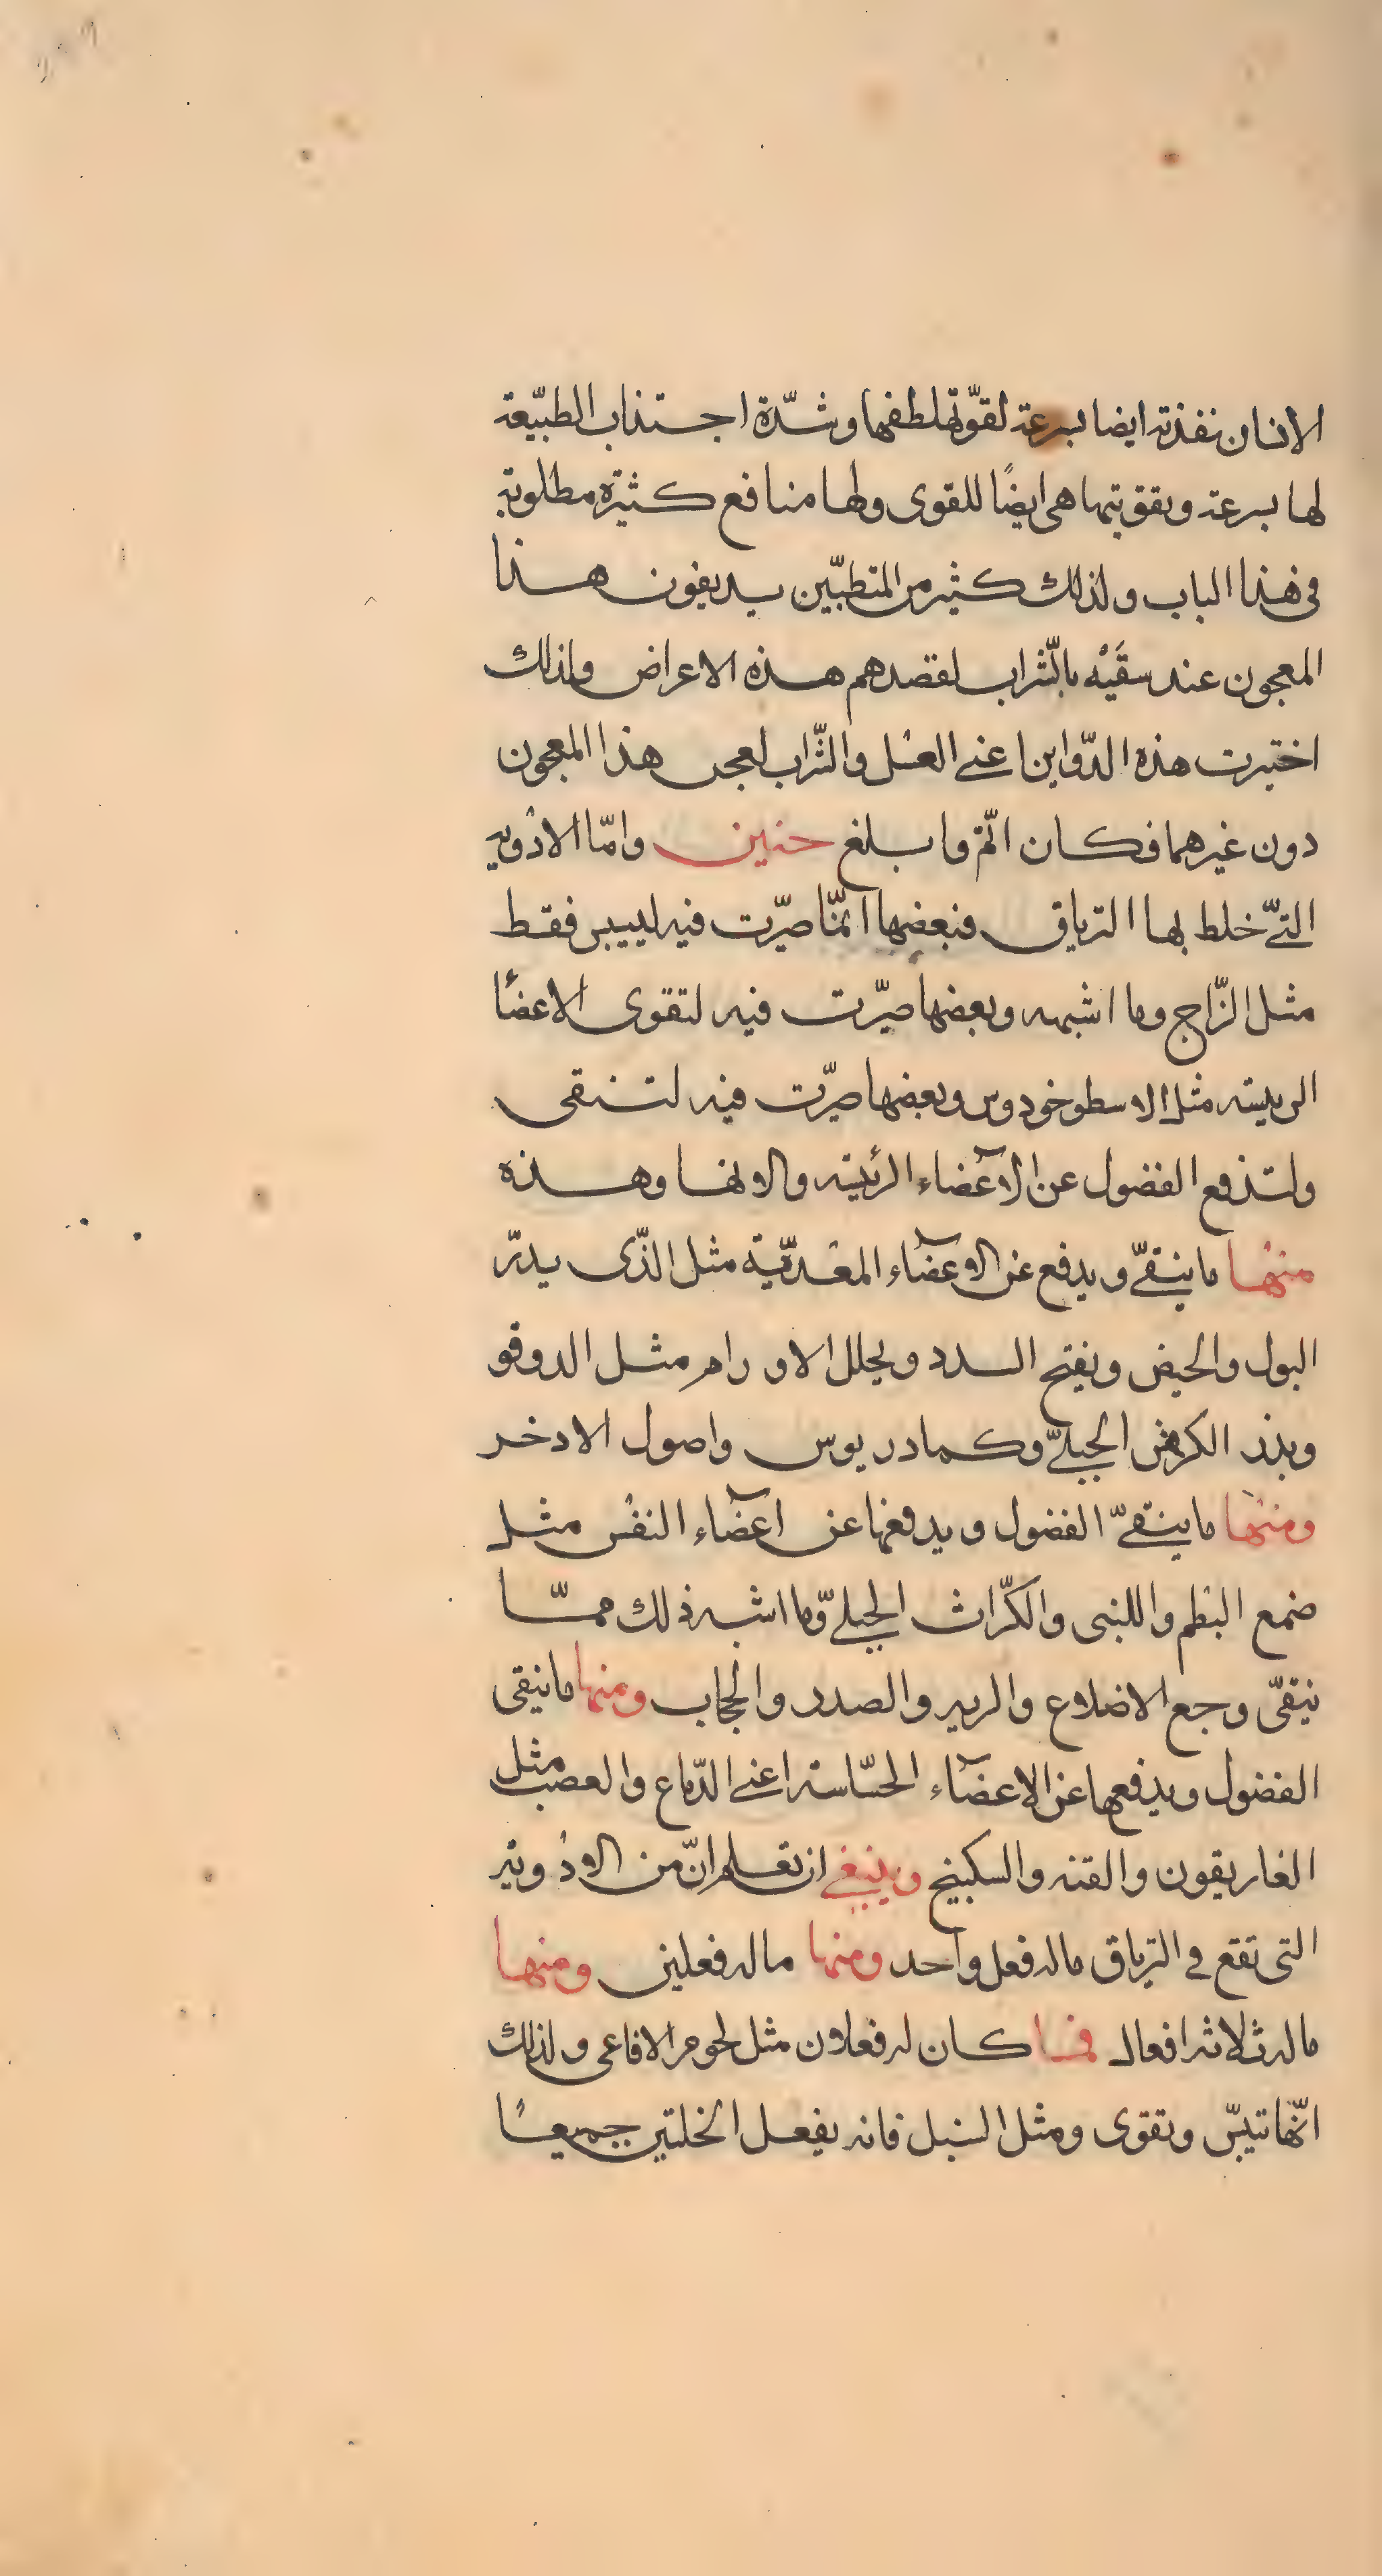 الانسان نفذته ايضا بسرعة لقوّتها لطفها وشدّة اجتذاب الطبيّعة
لها بسرعة وبقوبتها هى ايضًا للقوى ولها منافع كثيرة مطلوبة
فى هذا الباب ولذلك كثير من المتطبّين يديفون هذا
المعجون عند سقَيْه بالشّراب لقصدهم هذه الاعراض ولذلك
اختيرت هذه الدّواين اعنى العسْل والشّراب لعجن هذا المعجون
دون غيرهما فكان اتّم وابلغ حنين وامّا الادْويه
التىّ خلط بها الترياق فبعضها انمّا صيّرت فيه لييبس فقط
مثل الزّاج وما اشبهه وبعضها صيّرت فيه لتقوى الاعضأ
الرييسته مثل الاسطوخودوس وبعضها صيّرت فيه لتنقى
ولتدفع الفضول عن الاعضاء الرئيسه والاولها وهذه
منها ما ينقىّ ويدفع عن الاعضاء المعْدّية مثل الذّى يدرّ
البول والحيض ويفتح السدد ويحلل الاورام مثل الدوقو
وبذر الكرفس الجبلىّ وكمادريوس واصول الادخر
ومنها ما ينقىّ الفضول ويدفعها عن اعضاء النفْس مثل
ضمع البطم واللبنى والكرّاث الجبلىّ وما اشبه ذلك ممّا
ينقىّ وجع الاضلاع والريه والصدر والحجاب ومنها ما ينقى
الفضول ويدفعها عن الاعضاء الحسّاسة اعنى الدّماع والعصب مثل
الغاريقون والقنه والسكبينج وينبغى ان تعلم انّ من الادْوية
التى تقع فى الترياق ماله فعل واحد ومنها ماله فعلين ومنها
ماله ثلاثه افعال فما كان له فعلان مثل لحوم الافاعى ولذلك
انّها تيبّس وتقوى ومثل السنبل فانه يفعل الخلتين جميعًا